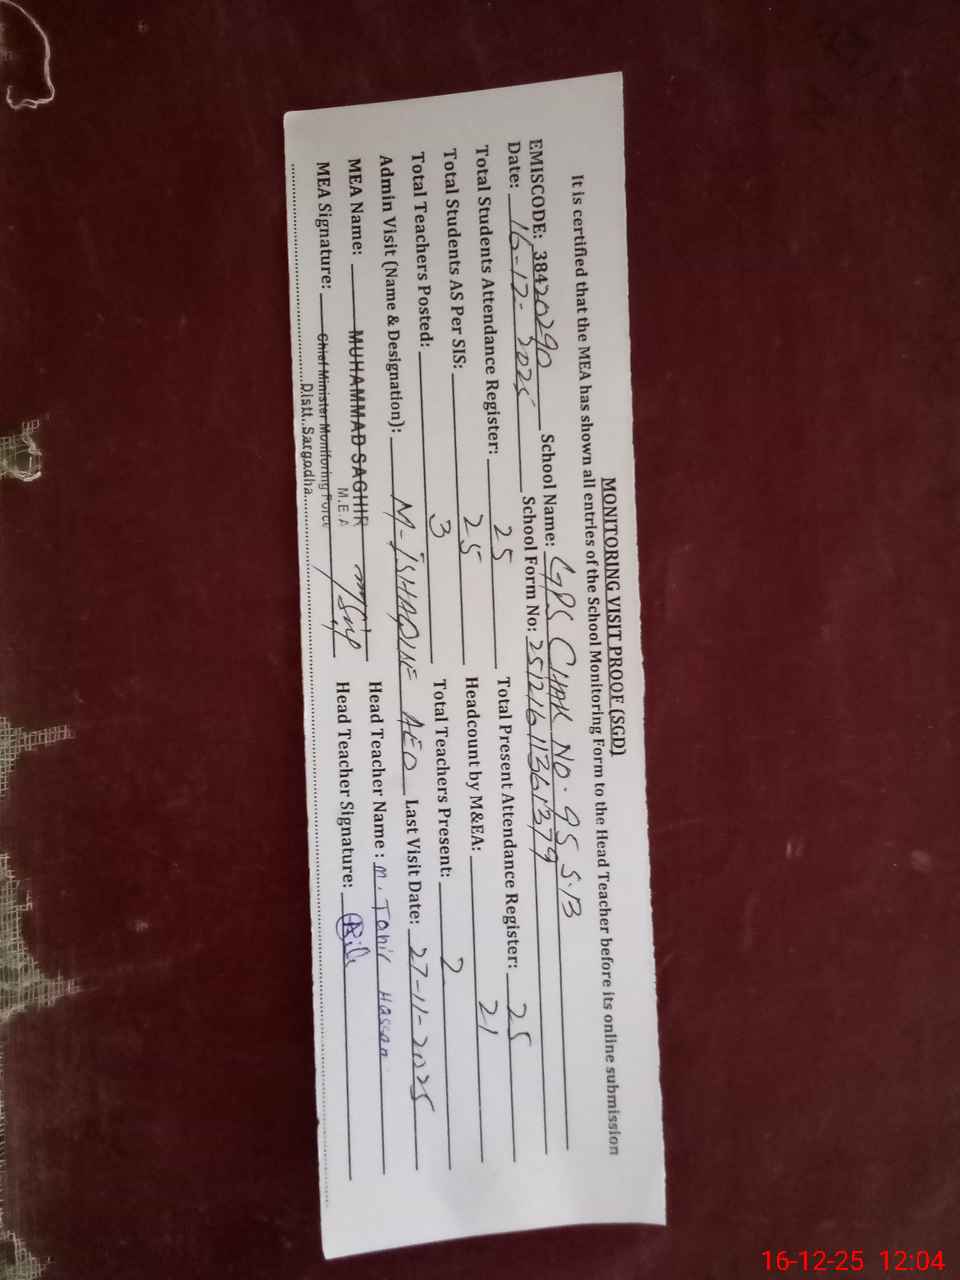 MONITORING VISIT PROOF (SGD)
It is certified that the MEA has shown all entries of the School Monitoring Form to the Head Teacher before its online submission
EMISCODE: 38420290 School Name: GPS CHAK NO. 95 S.B
Date: 16-12-2025 School Form No: 25121611361379
Total Students Attendance Register: 25 Total Present Attendance Register: 25
Total Students AS Per SIS: 25 Headcount by M&EA: 21
Total Teachers Posted: 3 Total Teachers Present: 2
Admin Visit (Name & Designation): M- AEO Last Visit Date: 27-11-2025
MEA Name: MUHAMMAD SAGHIR Head Teacher Name: M. Tahir Hassan
M.E.A
MEA Signature: Chief Minister Monitoring Force Head Teacher Signature:
Distt. Sargodha
16-12-25 12:04